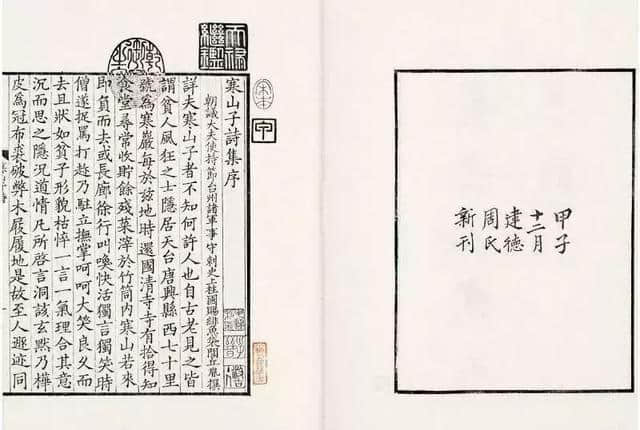 甲子
十二月
建德
周氏
新刊
天祿繼鑑
宋本
甲
寒山子詩集序
朝議大夫使持節台州諸軍事守刺史上柱國賜緋魚袋閭丘胤撰
詳夫寒山子者不知何許人也自古老見之皆
謂貧人風狂之士隱居天台唐興縣西七十里
號為寒巖每於兹地時還國清寺寺有拾得知
食堂尋常收貯餘殘菜滓於竹筒內寒山若來
即負而去或長廊徐行叫喚快活獨言獨笑時
僧遂捉罵打趁乃駐立撫掌呵呵大笑良久而
去且狀如貧子形貌枯悴一言一氣理合其意
沉而思之隱況道情凡所啓言洞該玄默乃樺
皮為冠布裘破弊木屐履地是故至人遯迹同